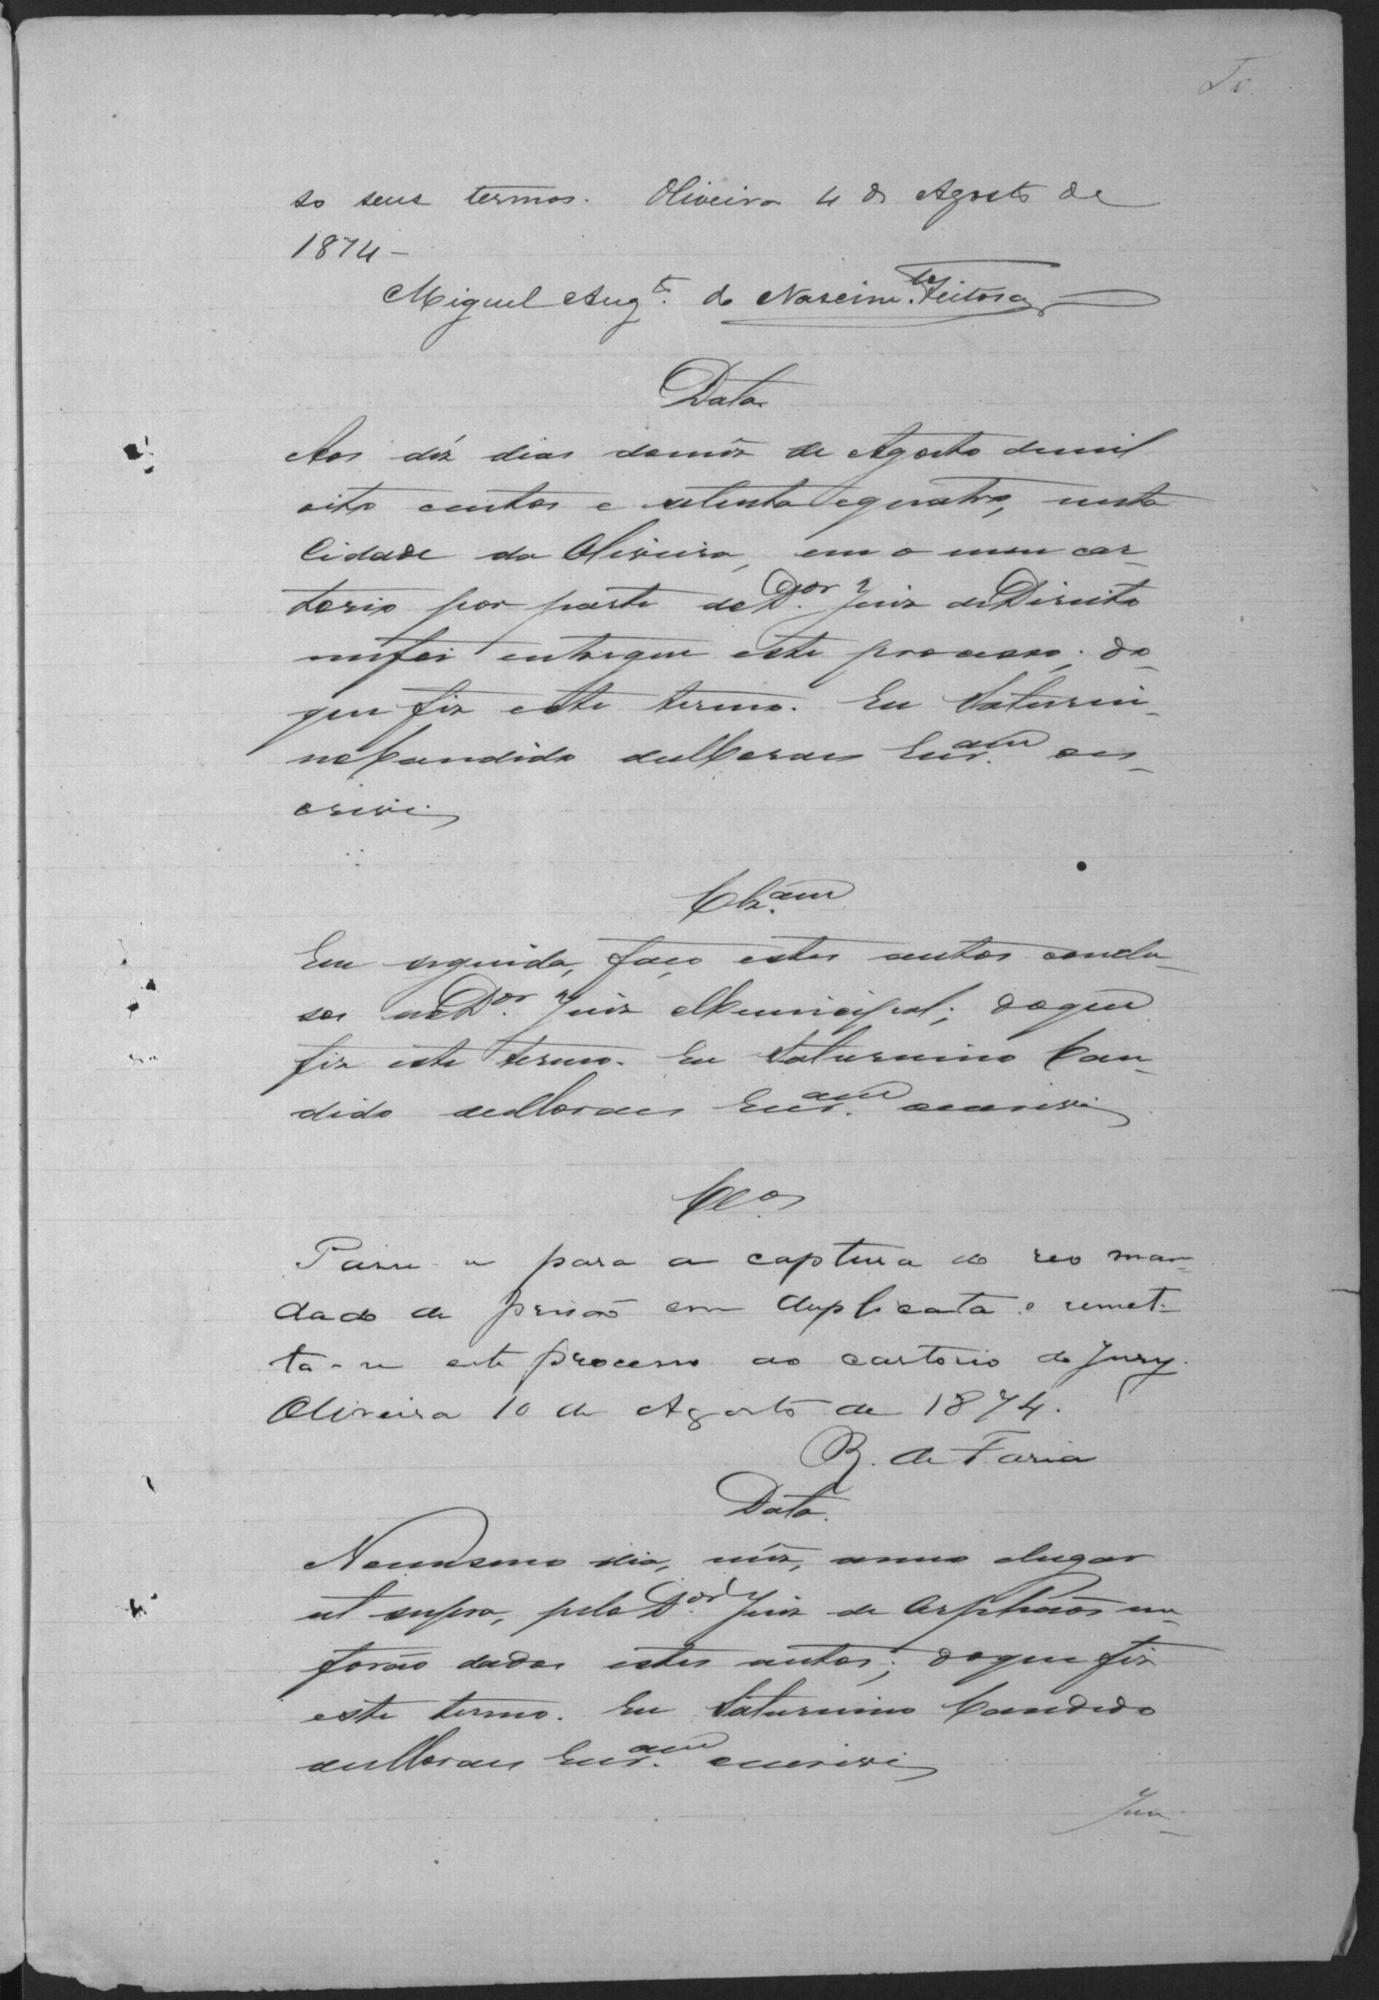 so seus termos. Oliveira 4 de Agosto de
1874 -
Miguel Aug.to do Nascim.to Feitosa
Data
Aos déz dias domêz de Agosto demil
oito centos e setenta equatro, nesta
Cidade da Oliveira, em o meu car-
torio por parte do D.or Juiz de Direito
mefoi entregue este processo; do
que fiz este termo. Eu Saturni-
no Candido de Moraes Escr.am es-
crevi
Clz.am
Em seguida, faço estes autos conclu-
sos ao D.or Juiz Municipal; doque
fiz este termo. Eu Saturnino Can-
dido de Moraes Escr.am escrevi
Cl.os
Passe-se para a captura do reo man-
dado de prisão em duplicata e remet-
ta-se este processo ao cartorio do Jury.
Oliveira 10 de Agosto de 1874.
R. de Faria
Data.
Nomesmo dia, mêz, anno elugar
ut supra, pelo D.or Juiz de Orphãos me
forão dados estes autos; doque fiz
este termo. Eu Saturnino Candido
de Moraes Escr.am escrevi
Jun-